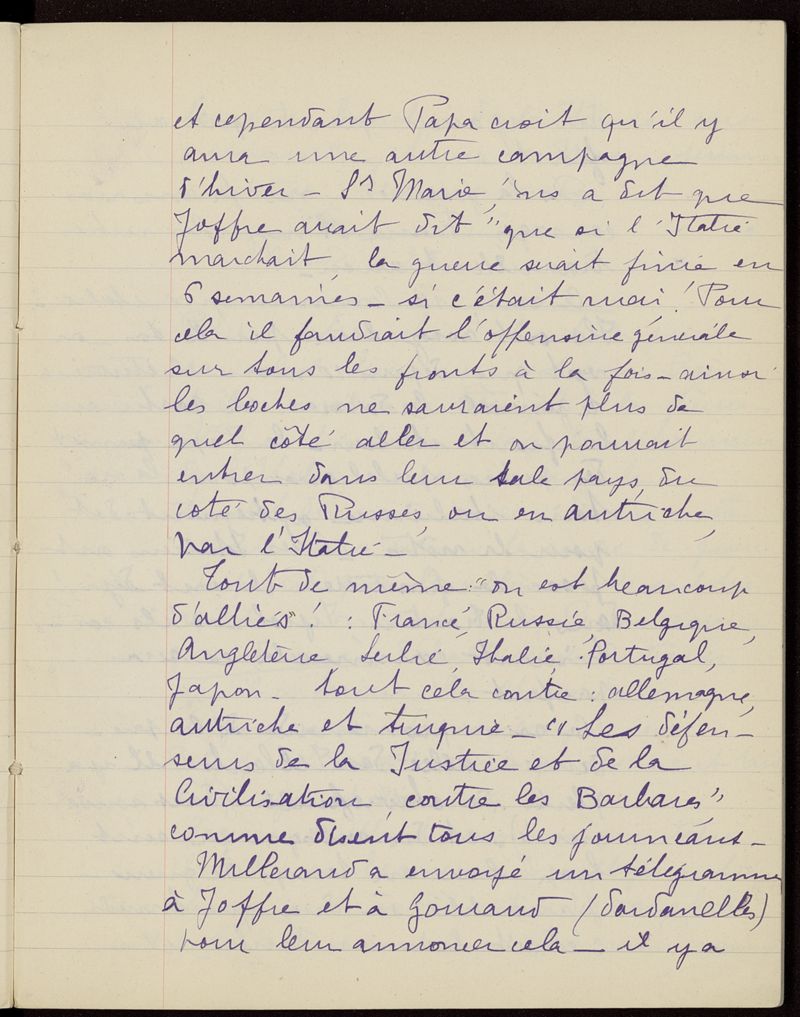 et cependant Papa croit qu'il y
aura une autre campagne
d'hiver – Sr Marie, ns a dit que
Joffre avait dit "que si l'Italie
marchait, la guerre serait finie en
6 semaines – si c'était vrai! Pour
cela il faudrait l'offensive générale
sur tous les fronts à la fois – ainsi
les boches ne sauraient plus de
quel côté aller et on pourrait
entrer dans leur sale pays, du
coté des Russes, ou en autriche,
par l'Italie –
Tout de même "on est beaucoup
d'alliés"! : France, Russie, Belgique,
Angleterre, Serbie, Italie, Portugal,
Japon – tout cela contre : allemagne,
autriche et turquie – "Les défen-
seurs de la Justice et de la
Civilisation, contre les Barbares"
comme disent tous les journeaux –
Millerand a envoyé un télégramme
à Joffre et à Gouraud (Dardanelles)
pour leur annoncer cela – il y a